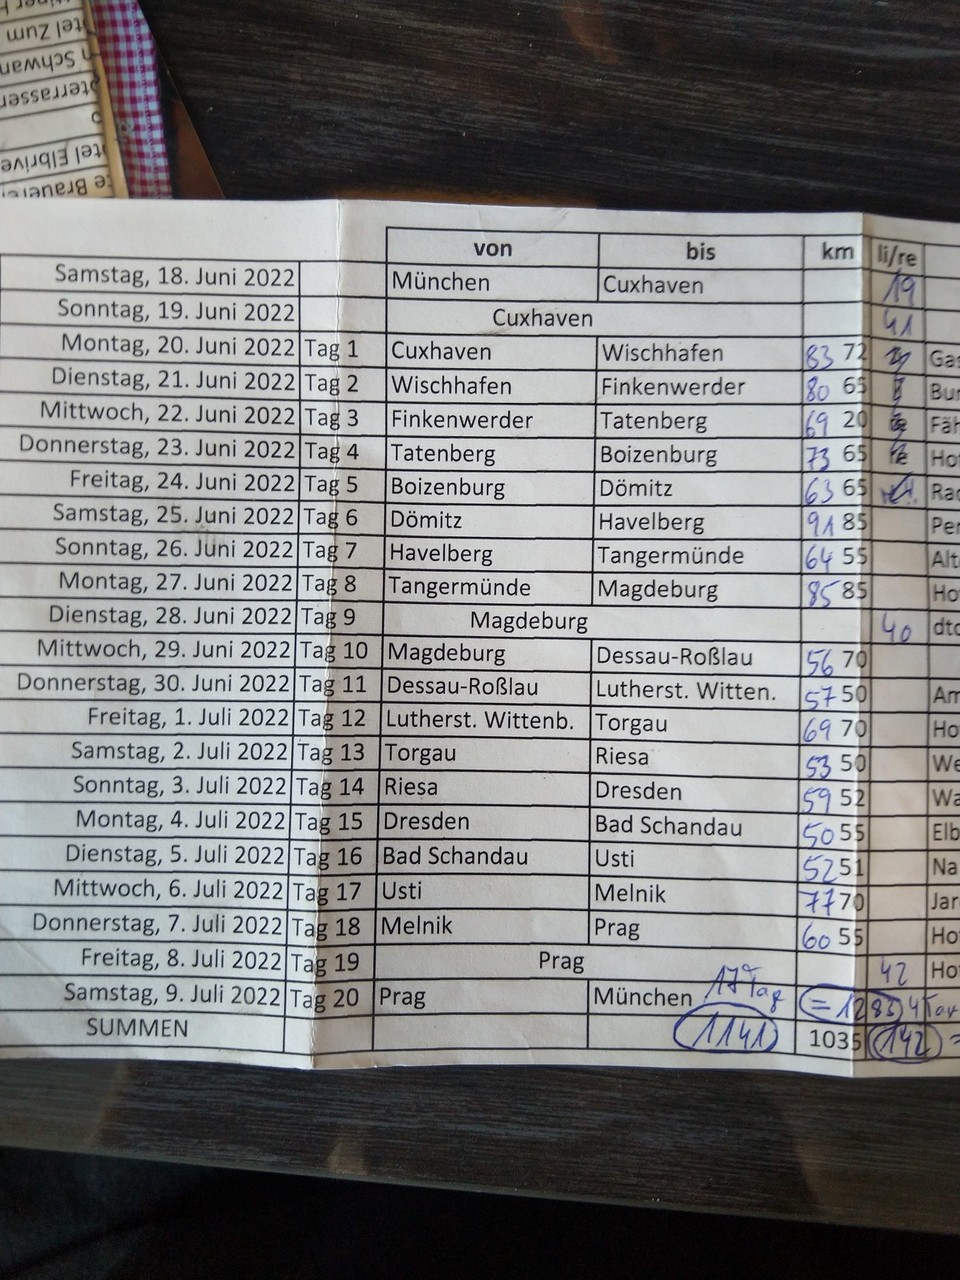 tel Zum
n Schwan
oterrassen
o
tel Elbrive
e Brauere
von bis km li/re
Samstag, 18. Juni 2022 München Cuxhaven 19
Sonntag, 19. Juni 2022 Cuxhaven 41
Montag, 20. Juni 2022 Tag 1 Cuxhaven Wischhafen 83 72 Gas
Dienstag, 21. Juni 2022 Tag 2 Wischhafen Finkenwerder 80 65 Bur
Mittwoch, 22. Juni 2022 Tag 3 Finkenwerder Tatenberg 69 20 Fäh
Donnerstag, 23. Juni 2022 Tag 4 Tatenberg Boizenburg 73 65 Ho
Freitag, 24. Juni 2022 Tag 5 Boizenburg Dömitz 63 65 Rad
Samstag, 25. Juni 2022 Tag 6 Dömitz Havelberg 91 85 Per
Sonntag, 26. Juni 2022 Tag 7 Havelberg Tangermünde 64 55 Alt
Montag, 27. Juni 2022 Tag 8 Tangermünde Magdeburg 85 85 Ho
Dienstag, 28. Juni 2022 Tag 9 Magdeburg 40 dto
Mittwoch, 29. Juni 2022 Tag 10 Magdeburg Dessau-Roßlau 56 70
Donnerstag, 30. Juni 2022 Tag 11 Dessau-Roßlau Lutherst. Witten. 57 50 Am
Freitag, 1. Juli 2022 Tag 12 Lutherst. Wittenb. Torgau 69 70 Ho
Samstag, 2. Juli 2022 Tag 13 Torgau Riesa 53 50 We
Sonntag, 3. Juli 2022 Tag 14 Riesa Dresden 59 52 Wa
Montag, 4. Juli 2022 Tag 15 Dresden Bad Schandau 50 55 Elb
Dienstag, 5. Juli 2022 Tag 16 Bad Schandau Usti 52 51 Na
Mittwoch, 6. Juli 2022 Tag 17 Usti Melnik 77 70 Jar
Donnerstag, 7. Juli 2022 Tag 18 Melnik Prag 60 55 Ho
Freitag, 8. Juli 2022 Tag 19 Prag 42 Ho
Samstag, 9. Juli 2022 Tag 20 Prag München 17 Tag = 1283 4 Tage
SUMMEN 1141 1035 142 =